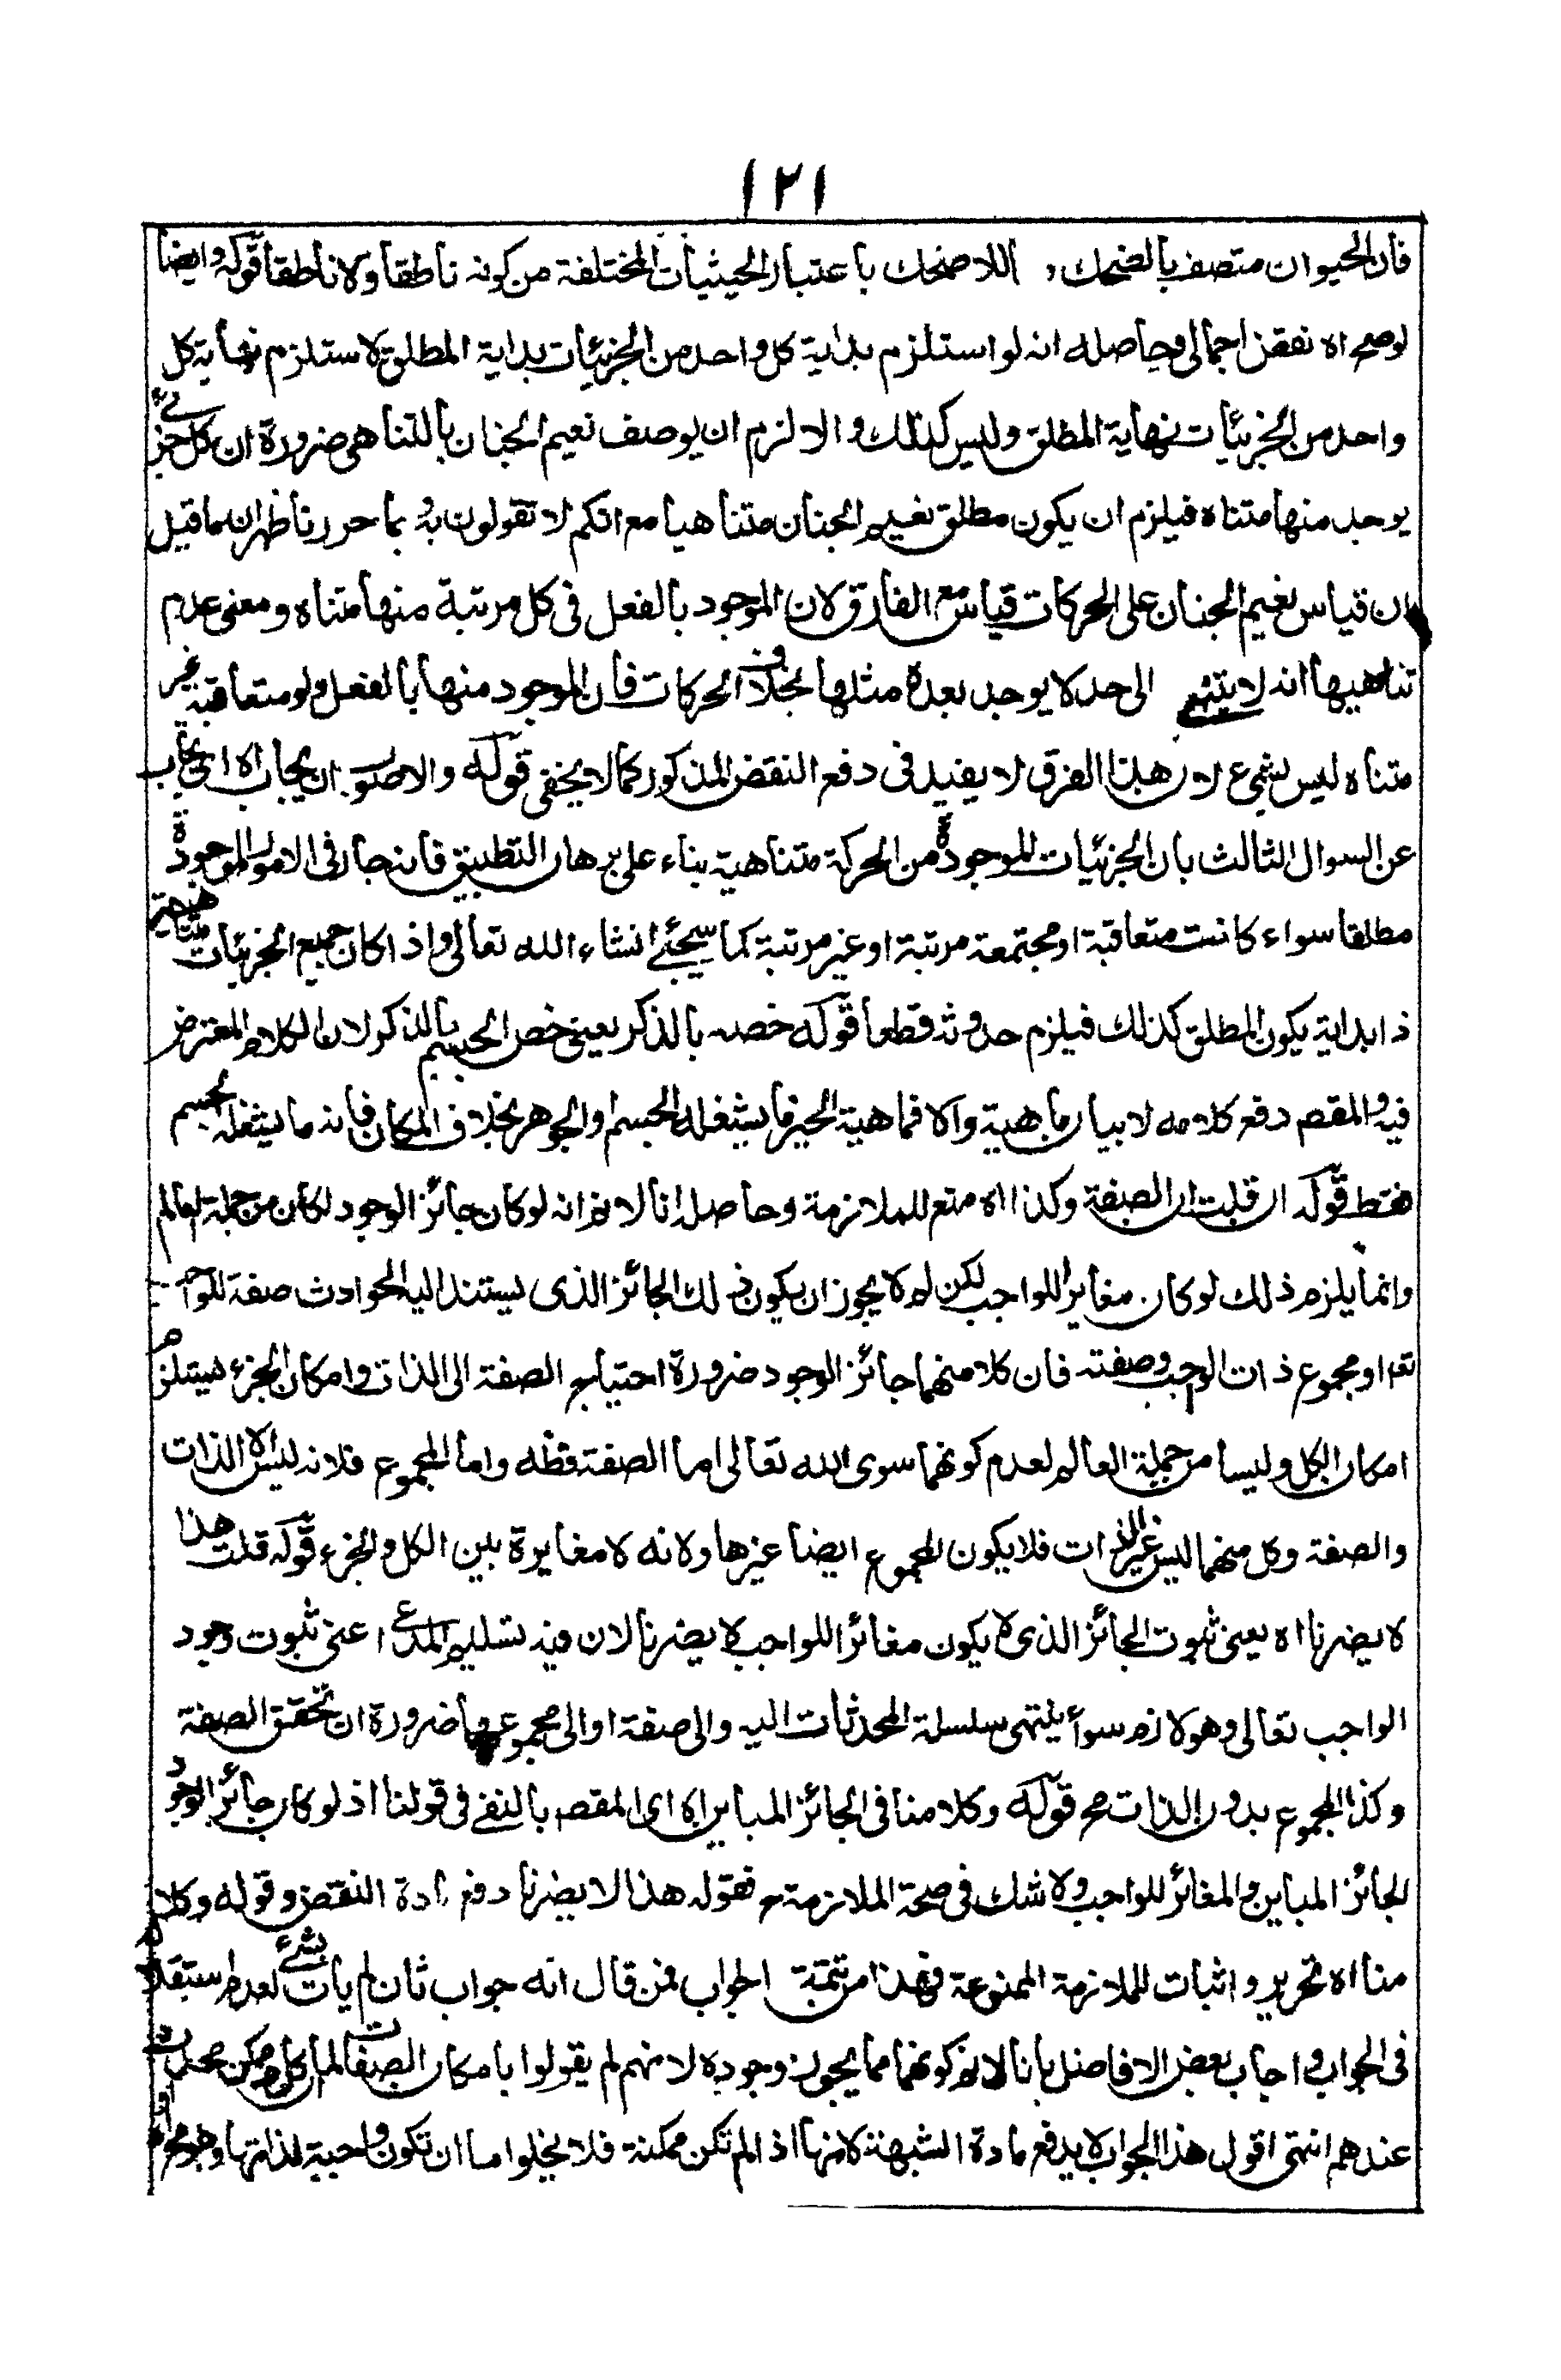 ١٢١
فان الحيوان متصف بالضحك و اللاضحك باعتبار الحيثيات المختلفة من كونه ناطقا ولا ناطقا قوله وايضا
لو صح اه نقض اجمالي وحاصله انه لو استلزم بداية كل واحد من الجزئيات بداية المطلق لاستلزم نهاية كل
واحد من الجزئيات نهاية المطلق وليس كذلك والا لزم ان يوصف نعيم الجنان بالتناهي ضرورة ان كل جزئي
يوجد منها متناه فيلزم ان يكون مطلق نعيم الجنان متناهيا مع انكم لا تقولون به بما حررنا ظهر ان ما قيل
ان قياس نعيم الجنان على الحركات قياس مع الفارق لان الموجود بالفعل في كل مرتبة منها متناه ومعنى عدم
تناهيها انه لا ينتهي الى حد لا يوجد بعده مثلها بخلاف الحركات فان الموجود منها بالفعل ولو متعاقبة غير
متناه ليس بشيء لان هذا الفرق لا يفيد في دفع النقض المذكور كما لا يخفى قوله والاصوب ان يجاب اه اي يجاب
عن السوال الثالث بان الجزئيات الموجودة من الحركة متناهية بناء على برهان التطبيق فانه جار في الامور الموجودة
مطلقا سواء كانت متعاقبة او مجتمعة مرتبة او غير مرتبة كما سيجئ انشاء الله تعالى واذا كان جميع الجزئيات متناهية
ذا بداية يكون المطلق كذلك فيلزم حدوثه قطعا قوله خصه بالذكر يعنى خص الجسم بالذكر لان الكلام المعترض
فيه والمقصم دفع كلامه لا بيان ماهية والا فماهية الحيز ما يشغله الجسم او الجوهر بخلاف المكان فانه ما يشغله الجسم
فقط قوله ان قلت ان الصفة وكذا اه منع للملازمة وحاصله انا لانم انه لو كان جائز الوجود لكان من جملة العالم
وانما يلزم ذلك لو كان مغايرا للواجب لكن لم لا يجوز ان يكون ذلك الجائز الذى يستند اليه الحوادث صفة للواجب
تعم او مجموع ذات الواجب وصفته فان كلا منهما جائز الوجود ضرورة احتياج الصفة الى الذات وامكان الجزء يستلزم
امكان الكل وليسا من جملة العالم لعدم كونهما سوى الله تعالى اما الصفة فظه واما المجموع فلانه ليس الا الذات
والصفة وكل منهما ليس غير الذات فلا يكون المجموع ايضا غيرها ولانه لا مغايرة بين الكل والجزء قوله قلت هذا
لا يضرنا اه يعنى ثبوت الجائز الذى لا يكون مغائرا للواجب لا يضرنا لان فيه تسليم المدعى اعنى ثبوت وجود
الواجب تعالى وهو لازم سواء ينتهى سلسلة المحدثات اليه والى صفة او الى مجموعهما ضرورة ان تحقق الصفة
وكذا المجموع بدون الذات مح قوله وكلامنا في الجائز المباين اه اى المقصم بالنفى في قولنا اذ لو كان جائز الوجود
الجائز المباين والمغائر للواجب ولا شك في صحة الملازمة ح فقوله هذا لا يضرنا دفع مادة النقض وقوله وكلا
منا اه تحرير واثبات للملازمة الممنوعة فهذا من تتمة الجواب فمن قال انه جواب ثان لم يأت بشئ لعدم استقلاله
في الجواب واجاب بعض الافاضل بانا لانم كونهما مما يجوز وجوده لانهم لم يقولوا بامكان الصفات لما ان كل ممكن محدث
عندهم انتهى اقول هذا الجواب لا يدفع مادة الشبهة لانها اذا لم تكن ممكنة فلا يخلوا ما ان تكون واجبة لذاتها وهو مح او